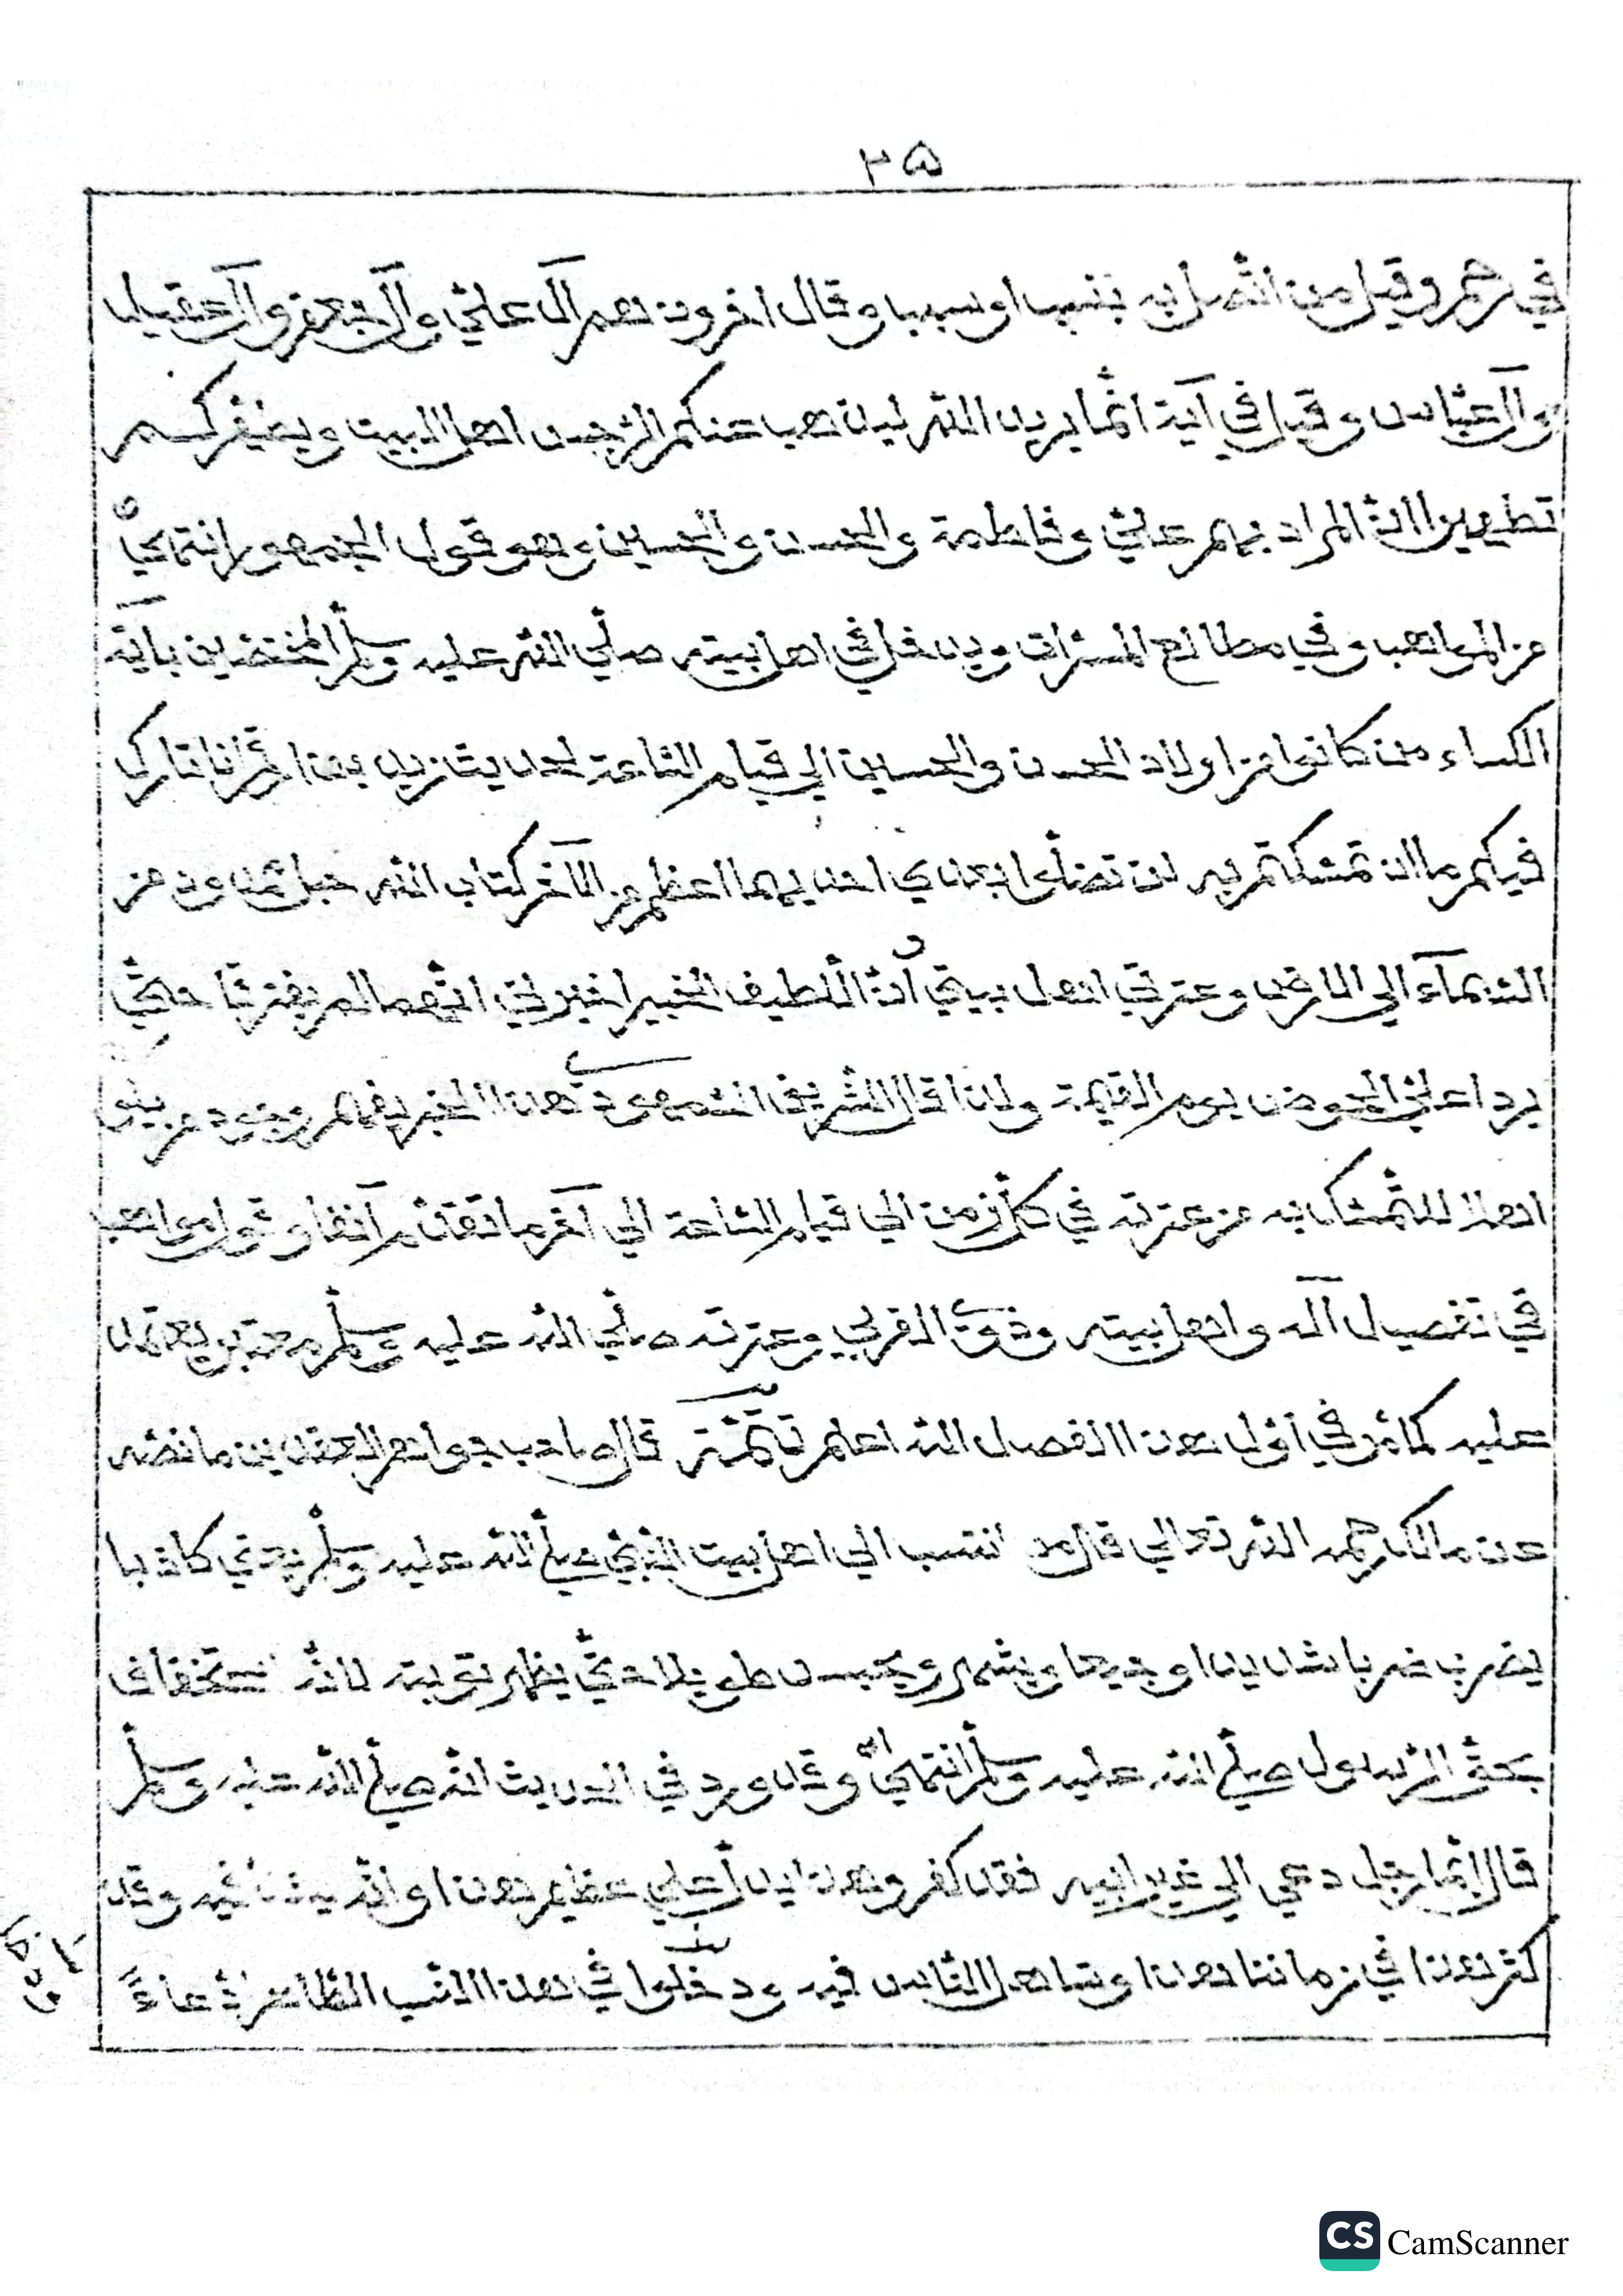 ٢٥
في رحم وقيل من اتّصل به بنسب او سبب وقال اخرون هم آل عليّ وآل جعفر وآل عقيل
وآل عبّاس وقيل في آية انّما يريد اللّٰه ليذهب عنكم الرّجس اهل البيت ويطهّركم
تطهيرا انّ المراد بهم عليّ وفاطمة والحسن والحسين وهو قول الجمهور انتهى
من المواهب وفي مطالع المسرّات ويدخل في اهل بيته صلّي اللّٰه عليه وسلّم المختصّين بآية
الكساء من كانوا من اولاد الحسن والحسين الي قيام السّاعة لحديث زيد بن ارقم انا تارك
فيكم ما ان تمسّكتم به لن تضلّوا بعدي احديهما اعظم من الآخر كتاب اللّٰه حبل ممدود من
السّمآء الي الارض وعترتي اهل بيتي وانّ اللّطيف الخبير اخبرني انّهما لم يفترقا حتّي
يردا عليّ الحوض يوم القيمة ولذا قال الشّريف السّمهودي هذا الخبر يفهم وجود من يكون
اهلا للتّمسّك به من عترته في كلّ زمن الي قيام السّاعة الي آخر ما تقدّم آنفا وقول مواهب
في تفصيل آله واهل بيته وذوي القربي وعترته صلّي اللّٰه عليه وسلّم معتبر يعتمد
عليه كما مرّ في اوّل هذا الفصل اللّٰه اعلم تتمّة قال صاحب جواهر العقدين ما نصّه
عن مالك رحمه اللّٰه تعالي قال من انتسب الي اهل بيت النّبيّ صلّي اللّٰه عليه وسلّم يعني كاذبا
يضرب ضربا شديدا وجيعا ويشهر ويحبس طويلا حتّي يظهر توبته لانّه استخفاف
بحقّ الرّسول صلّي اللّٰه عليه وسلّم انتهى وقد ورد في الحديث انّه صلّي اللّٰه عليه وسلّم
قال ايّما رجل دعي الي غير ابيه فقد كفر وهذا يدلّ علي عظم هذا وقد
كثر هذا في زماننا هذا وتساهل النّاس فيه ودخلوا في هذا النّسب الطّاهر ادّعاءً